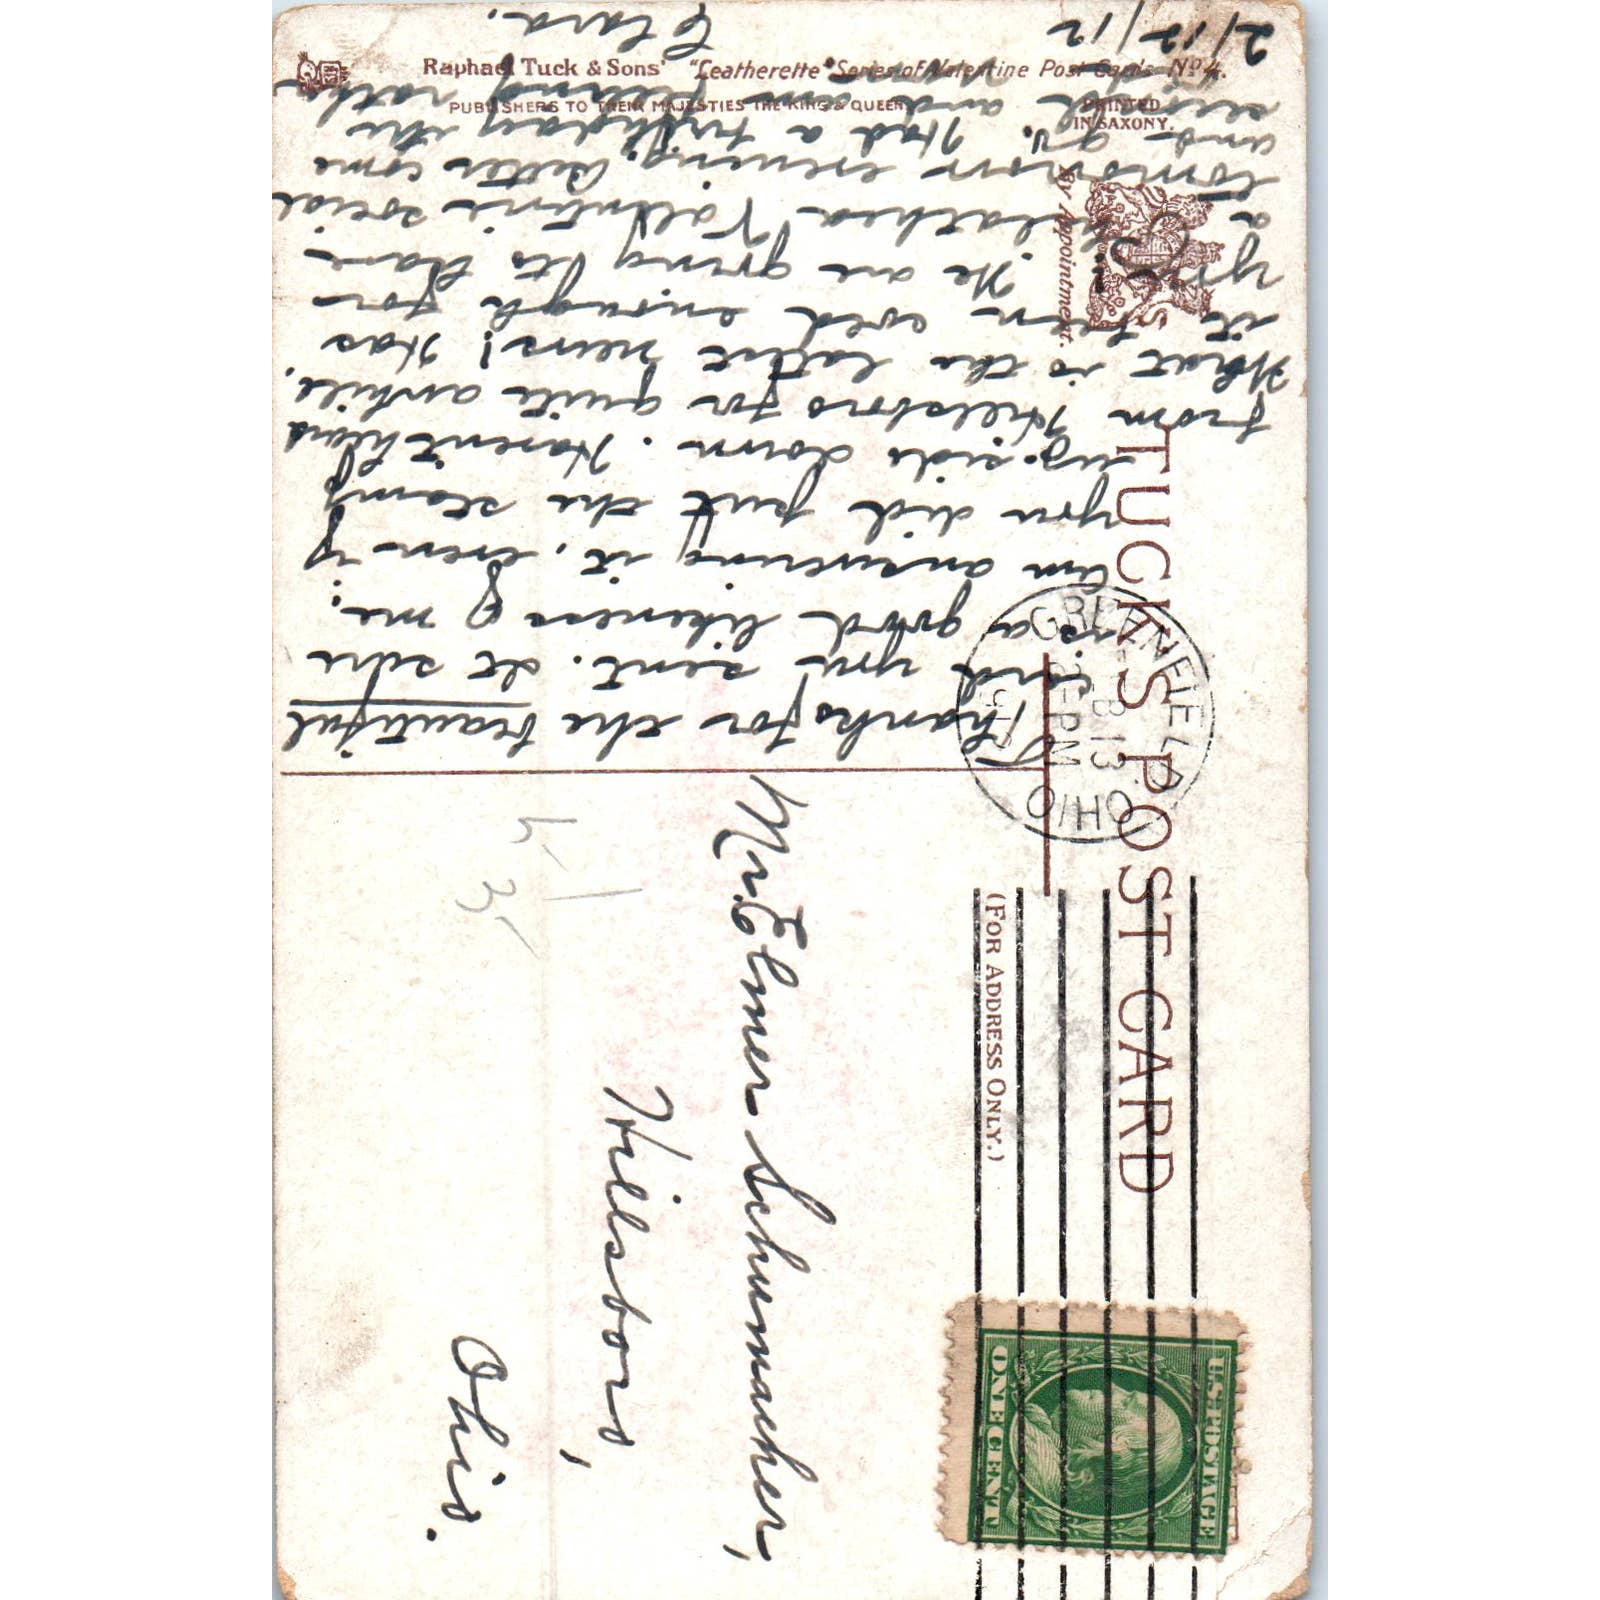 Raphael Tuck & Sons' "Leatherette" Series of Valentine Post Cards No. 4.
PUBLISHERS TO THEIR MAJESTIES THE KING & QUEEN
PRINTED
IN SAXONY.
By Appointment.
TUCK'S POST CARD
(FOR ADDRESS ONLY.)
GREENFIELD
FEB 13
-PM
OHIO
U.S. POSTAGE
ONE CENT
Mr. Elmer Schumacher,
Hillsboro,
Ohio.
Thanks for the beautiful
card you sent. It sure
is a good likeness of me.
Am answering it, even if
you did put the stamp
up-side down. Haven't heard
from Hillsboro for quite awhile.
What is the latest news! Has
it been cold enough for
you? We are giving
a Valentine social
tomorrow evening. Better come
and Had a birthday the
second and am feeling rather
Clara.
2/12/12